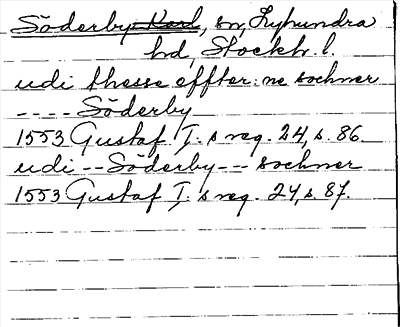 Söderby Karl, sn, Lyhundra
hd, Stockh. l.
udi thesse effter:ne sochner
---- Söderby
1553 Gustaf I:s reg. 24, s. 86.
udi -- Söderby -- sochner
1553 Gustaf I:s reg. 24, s. 87.